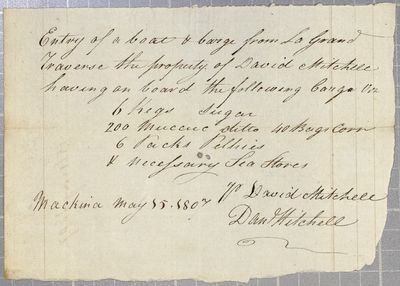 Entry of a boat & barge from La Grand
Traverse the property of David Mitchell
having on board the following Cargo Viz
6 Kegs Sugar
200 Mucucs ditto 40 Bags Corn
6 Packs Peltries
& necessary Sea Stores
Mackina May 15. 1807 Pr David Mitchell
Danl Mitchell